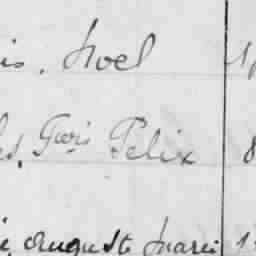 is. Noel 1
es, Gris Félix 8
ie, Auguste Marie 1